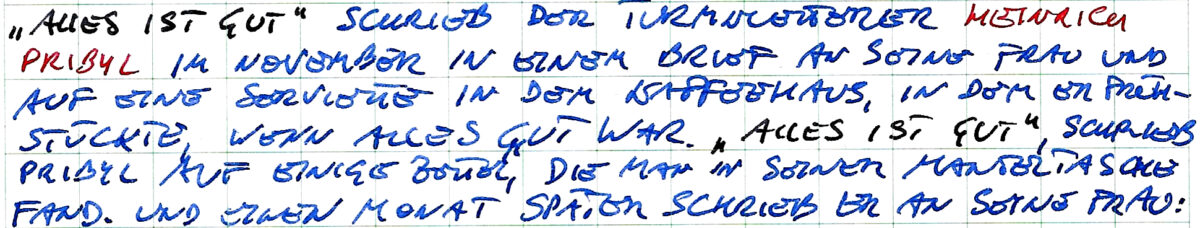 „ALLES IST GUT“ SCHRIEB DER TURMKLETTERER HEINRICH
PRIBYL IM NOVEMBER IN EINEM BRIEF AN SEINE FRAU UND
AUF EINE SERVIETTE IN DEM KAFFEEHAUS, IN DEM ER FRÜH-
STÜCKTE, WENN ALLES GUT WAR. „ALLES IST GUT“, SCHRIEB
PRIBYL AUF EINIGE ZETTEL, DIE MAN IN SEINER MANTELTASCHE
FAND. UND EINEN MONAT SPÄTER SCHRIEB ER AN SEINE FRAU: